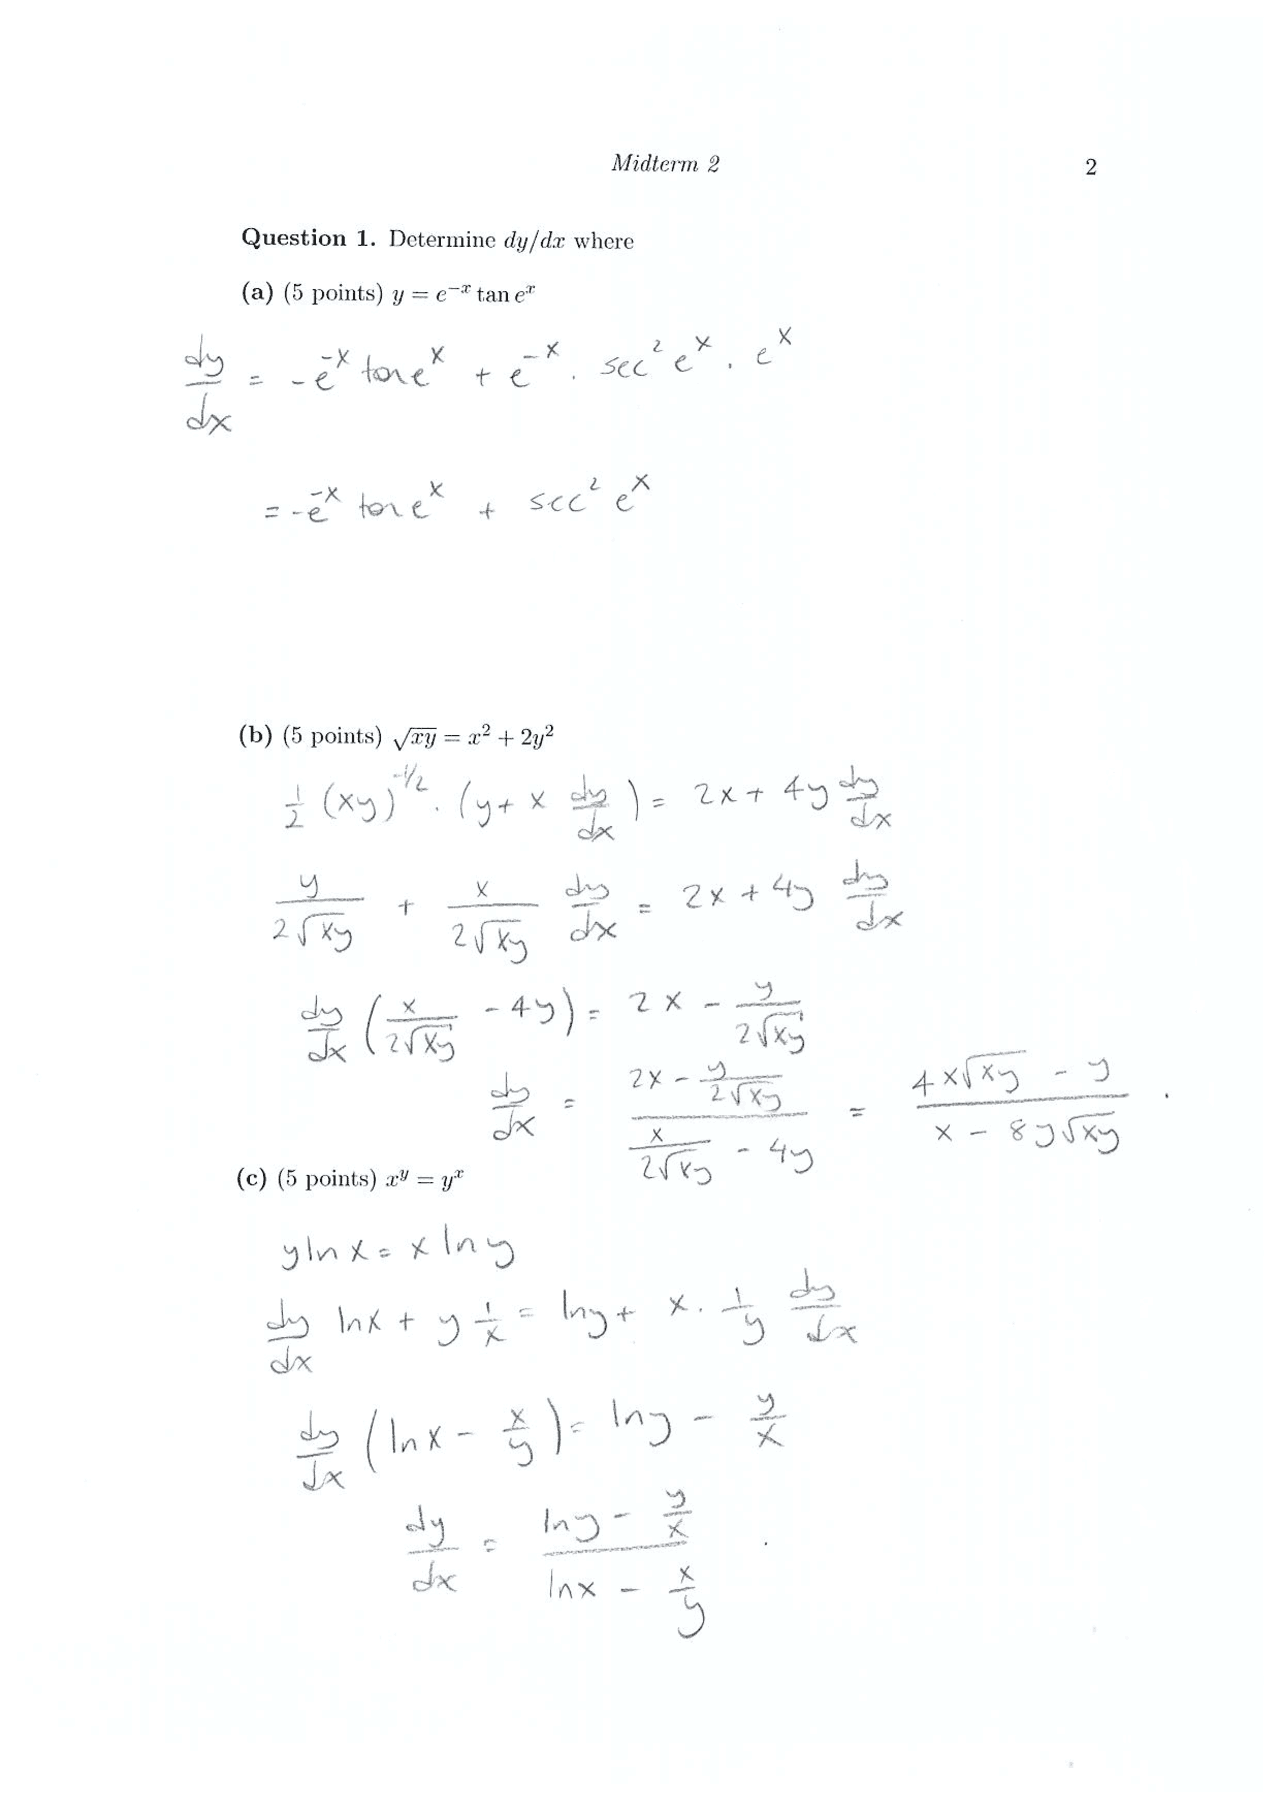 Midterm 2 2
Question 1. Determine dy/dx where
(a) (5 points) y = e^{-x} tan e^x
dy/dx = -e^{-x} tan e^x + e^{-x} . sec^2 e^x . e^x
= -e^{-x} tan e^x + sec^2 e^x
(b) (5 points) √(xy) = x^2 + 2y^2
1/2 (xy)^{-1/2} . (y + x dy/dx) = 2x + 4y dy/dx
y/(2√(xy)) + x/(2√(xy)) dy/dx = 2x + 4y dy/dx
dy/dx (x/(2√(xy)) - 4y) = 2x - y/(2√(xy))
dy/dx = (2x - y/(2√(xy)))/(x/(2√(xy)) - 4y) = (4x√(xy) - y)/(x - 8y√(xy)) .
(c) (5 points) x^y = y^x
y ln x = x ln y
dy/dx ln x + y 1/x = ln y + x . 1/y dy/dx
dy/dx (ln x - x/y) = ln y - y/x
dy/dx = (ln y - y/x)/(ln x - x/y) .